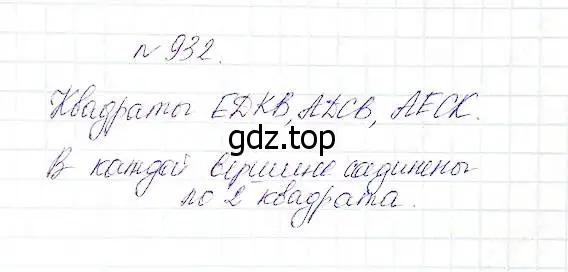 № 932.
Квадраты EDKB, ADCB, AECK.
gdz.top
В каждой вершине соединены
по 2 квадрата.